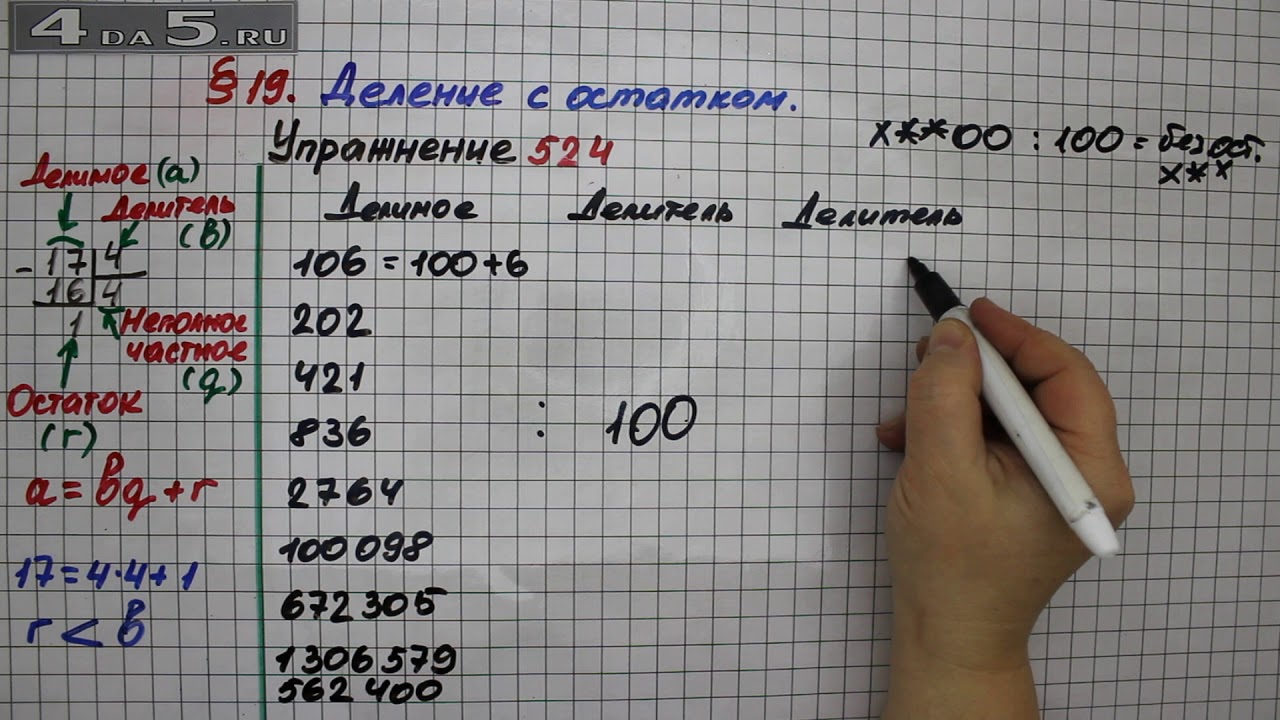 4DA5.RU
§ 19. Деление с остатком.
Упражнение 524
х**00 : 100 = без ост.
х**
Делимое (а)
Делитель
(в)
- 17 4
16 4
1
Неполное
частное
(q)
Остаток
(r)
a = вq + r
17 = 4 · 4 + 1
r < в
Делимое Делитель Делитель
106 = 100 + 6
202
421
836 : 100
2764
100 098
672 305
1 306 579
562 400